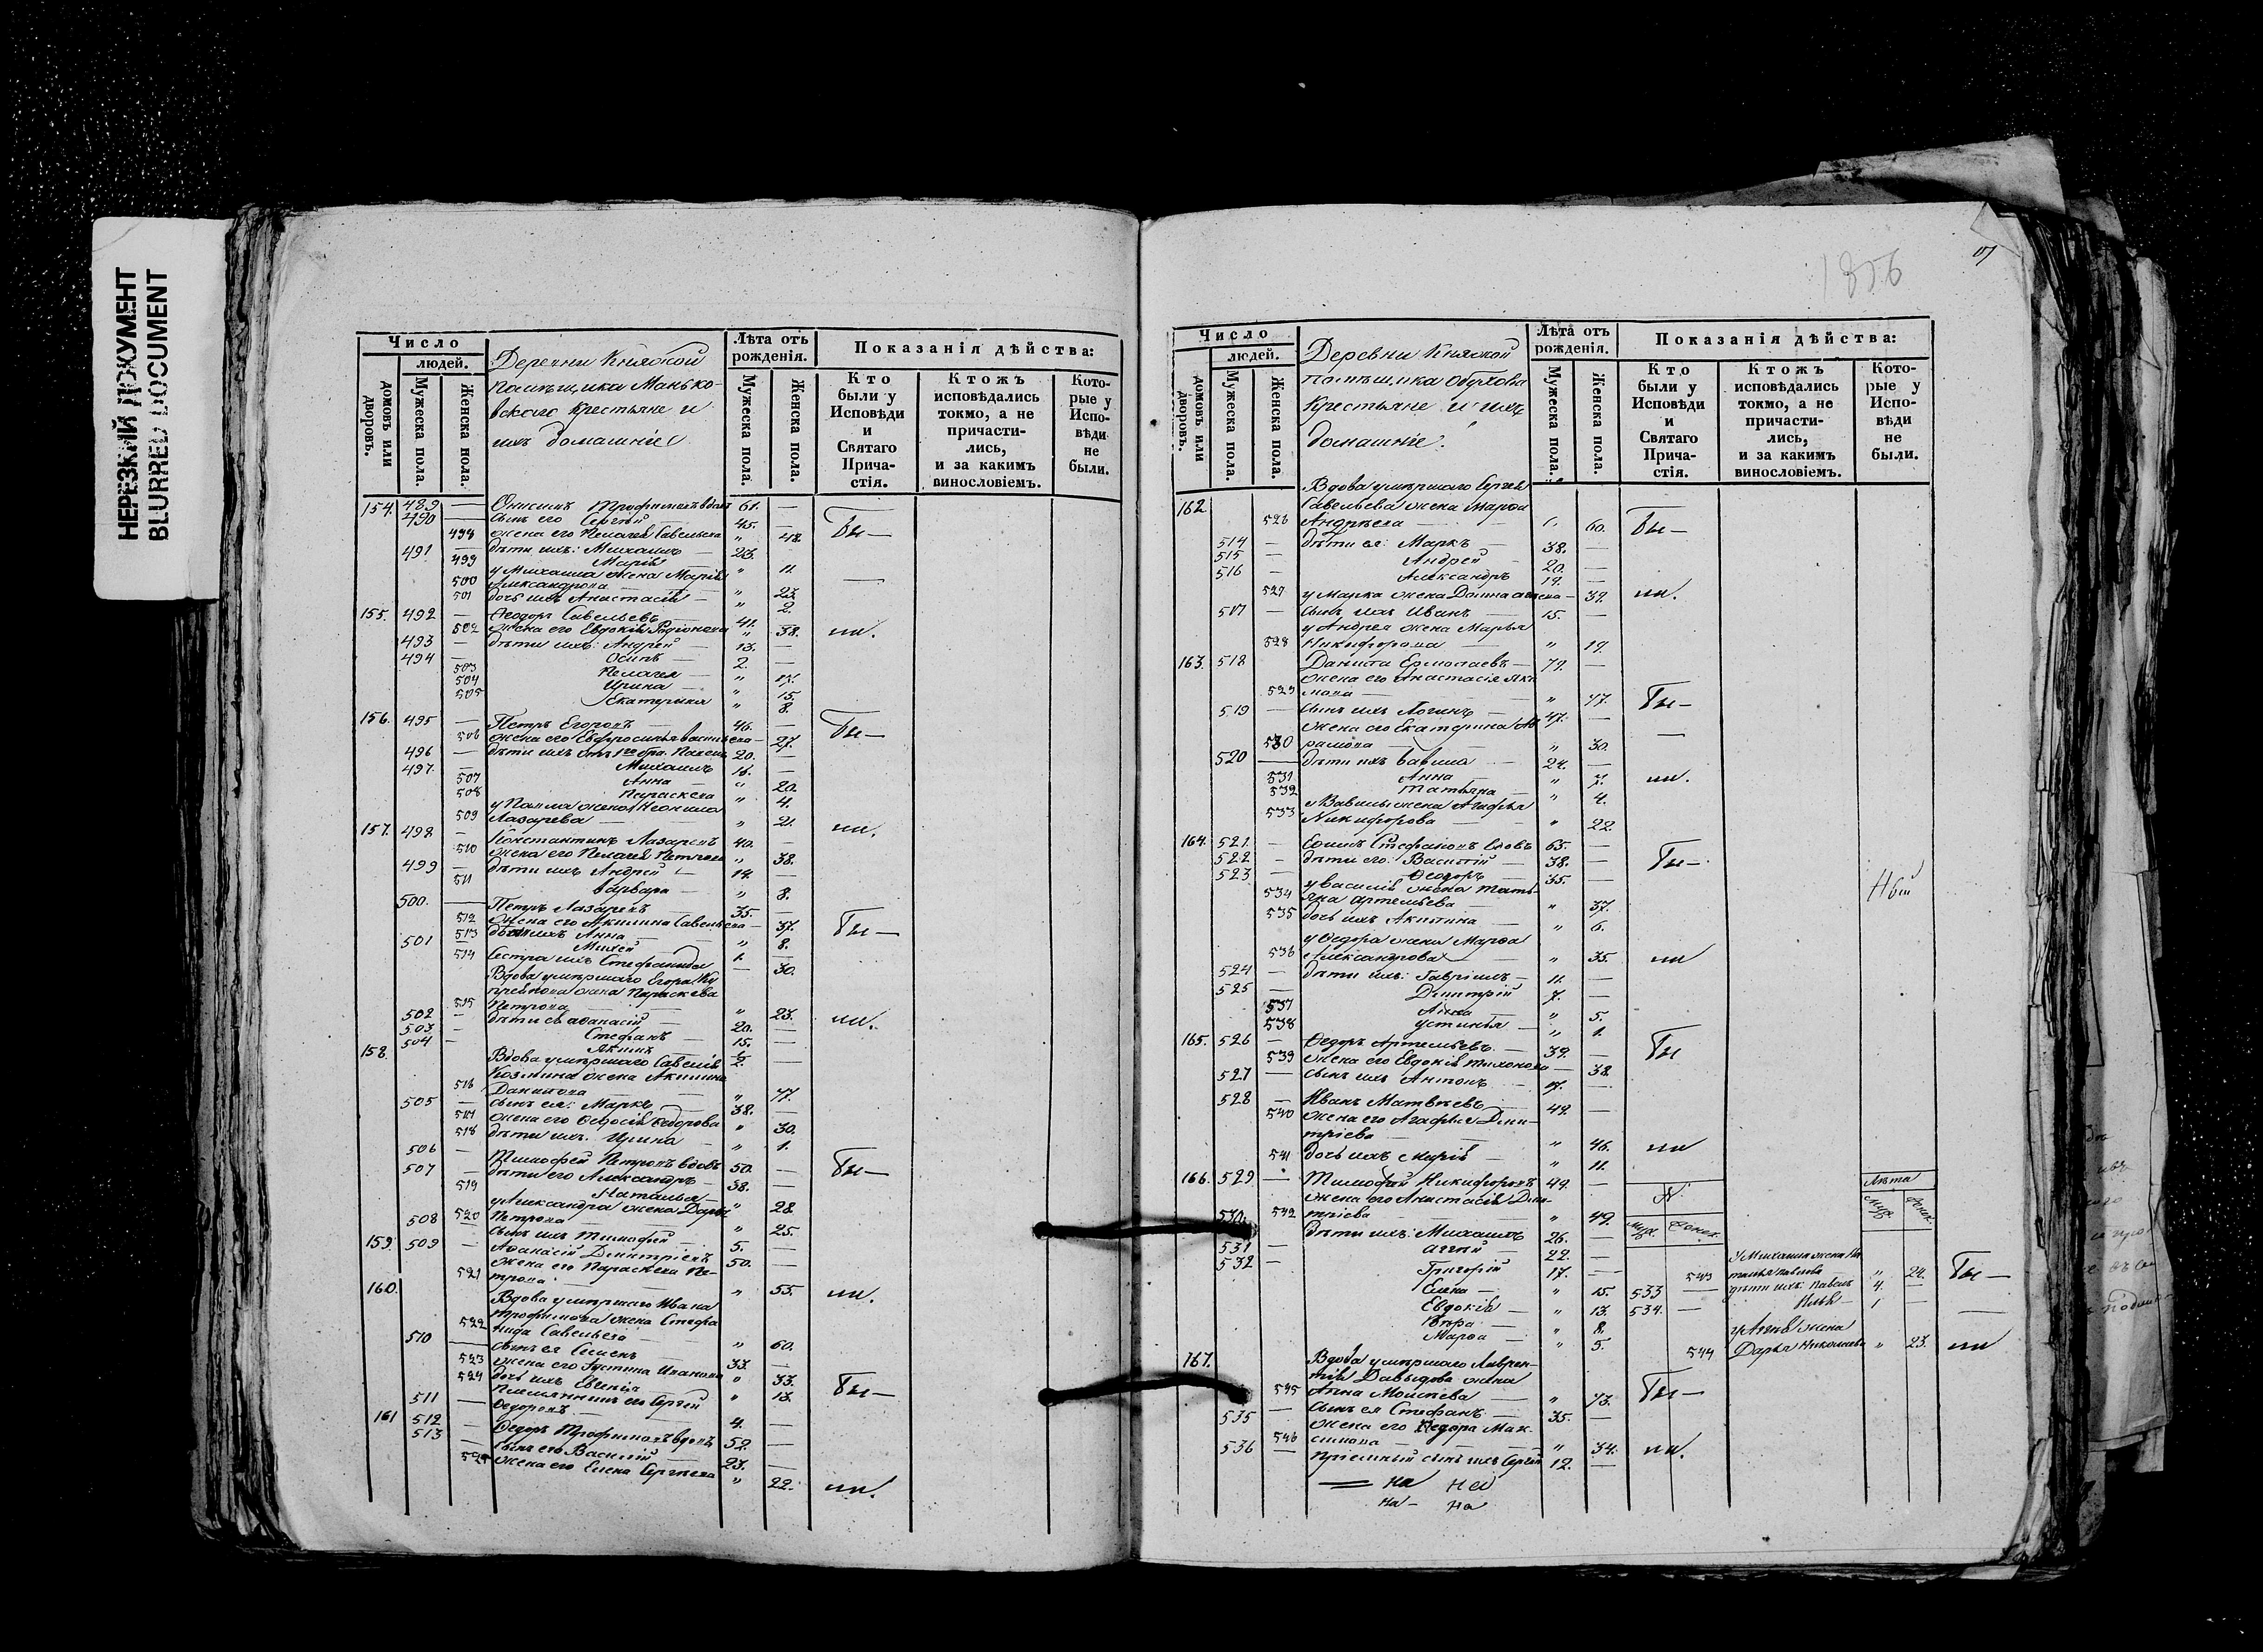 НЕРЕЗКИЙ ДОКУМЕНТ
BLURRED DOCUMENT
Число
людей.
домовъ или дворовъ.
Мужеска пола.
Женска пола.
Деревни Княжой
помѣщика Манько-
вского крестьяне и
ихъ домашніе
Лѣта отъ рожденія.
Мужеска пола.
Женска пола.
Показанія дѣйства:
Кто были у Исповѣди и Святаго Прича-стія.
Ктожъ исповѣдались токмо, а не причасти-лись, и за какимъ винословіемъ.
Кото-рые у Испо-вѣди не были.
154. 489 — Онисимъ Трофимовъ вдовъ 61. —
490 — сынъ его Сергѣй — 45. — Бы—
498 жена его Пелагея Савельева " 48
491 — дѣти ихъ: Михаилъ — 23. —
499 Марія — " 11
у Михаила жена Марія
500 Александрова — " 23
501 дочь ихъ Анастасія — " 2.
155. 492 — Ѳеодоръ Савельевъ — 41. —
502 жена его Евдокія Родіонова " 38. ли.
493 — дѣти ихъ: Андрей — 13. —
494 — Осипъ — 2. —
503 Пелагея — " 17.
504 Ирина — " 15.
505 Екатерина " 8.
156. 495 — Петръ Егоровъ — 46. —
506 жена его Евфросинья Васильева — 27. Бы—
496 — дѣти ихъ отъ 1го бра. Павелъ 20. —
497 — Михаилъ 16. —
507 Анна " 20.
508 Параскева " 4.
у Павла жена Неонила
509 Лазарева — " 21. ли.
157. 498 — Константинъ Лазаревъ 40. —
510 жена его Пелагея Петрова " 38.
499 — дѣти ихъ Андрей — 14. —
511 Варвара — " 8.
500. — Петръ Лазаревъ 35. —
512 жена его Акилина Савельева — 37. Бы—
513 дѣти ихъ Анна — " 8.
501 — Михей 1. —
514 сестра ихъ Стефанида — 30.
Вдова умершаго Егора
жена Параскева
515 Петрова — " 23. ли.
502 — дѣти ея Аѳанасій — 20. —
503 — Стефанъ — 15. —
504 — Якимъ —
158. Вдова умершаго Савелія
Козмина жена Акилина
516 Данилова — " 77.
505 — сынъ ея: Маркъ — 38. —
517 жена его Ѳедосія Ѳедорова " 30.
518 дѣти ихъ: Ирина — " 1.
506 — Тимофей Петровъ вдовъ 50. — Бы—
507 — дѣти его Александръ — 38. —
519 Наталья — " 28
у Александра жена Дарья
520 Петрова — " 25.
508 — сынъ ихъ Тимофей — 5. —
159. 509 — Аѳанасій Дмитріевъ 50. —
жена его Параскева Пе-
521 трова — " 55. ли.
160. Вдова умершаго Ивана
Трофимова жена Стефа
522 нида Савельева — " 60.
510 — сынъ ея Семенъ — 33. —
523 жена его Іустина Иванова " 33.
524 дочь ихъ Евгенія — " 13. Бы—
511 — племянникъ ея Сергей
Ѳедоровъ — 4. —
161 512 — Ѳедоръ Трофимовъ вдовъ 52. —
513 — сынъ его Василій — 23. —
525 жена его Елена Сергѣева " 22. ли.
1856
Число
людей.
домовъ или дворовъ.
Мужеска пола.
Женска пола.
Деревни Княжой
помѣщика Обухова
крестьяне и ихъ
домашніе.
Лѣта отъ рожденія.
Мужеска пола.
Женска пола.
Показанія дѣйства:
Кто были у Исповѣди и Святаго Прича-стія.
Ктожъ исповѣдались токмо, а не причасти-лись, и за какимъ винословіемъ.
Кото-рые у Испо-вѣди не были.
Вдова умершаго Сергея
162. Савельева жена Марѳа
526 Андреева — 60. Бы—
514 — дѣти ея: Маркъ — 38. —
515 — Андрей — 20. —
516 — Александръ 19. —
527 у Марка жена Домна — 39. ли.
517 — сынъ ихъ Иванъ — 15. —
у Андрея жена Марья
528 Никифорова — " 19.
163. 518 Данила Ермолаевъ — 79. —
жена его Анастасія Яки
529 мова — " 77. Бы—
519 — сынъ ихъ Логинъ — 47. —
жена его Екатерина Ав
530 рамова — " 30. —
520 — дѣти ихъ Вавила — 24. —
531 Анна — " 7. ли.
532 Татьяна — " 4.
у Вавилы жена Агафья
533 Никифорова — " 22.
164. 521. — Стефановъ вдовъ 65. —
522 — дѣти его: Василій — 38. — Бы—
523 — Ѳеодоръ — 35. —
у Василія жена Тать
534 яна Артемьева — " 37.
535 дочь ихъ Акилина — " 6.
у Ѳедора жена Марѳа
536 Александрова — " 35. ли
524 — дѣти ихъ: Гавріилъ — 11. —
525 — Дмитрій 7. —
537 Анна — " 5.
538 Устинья — " 1.
165. 526 — Ѳедоръ Артемьевъ — 39. — Бы
539 жена его Евдокія Тихонова — 38.
527 — сынъ ихъ Антонъ — 17. —
528 — Иванъ Матвѣевъ — 49. —
540 жена его Агафья Дми-
тріева — " 46. ли
541 дочь ихъ Марія — " 11.
166. 529 — Тимофей Никифоровъ 49. —
жена его Анастасія Дми-
542 тріева — " 49.
530. дѣти ихъ: Михаилъ 26. —
531 — Аггей — 22. —
532 — Григорій 17. —
Елена — " 15.
Евдокія — " 13.
Вѣра — " 8.
Марѳа — " 5.
№
муж. женск.
Лѣта
муж. женск.
У Михаила жена На
543 талья Павлова " 24. Бы—
533 — дѣти ихъ: Павелъ 4. —
534. — Илья — 1 —
у Аггея жена
544 Дарья Николаева " 23. ли
167. Вдова умершаго Лаврен-
тія Давыдова жена
545 Анна Моисѣева — " 73. Бы—
535 — сынъ ея Стефанъ — 35. —
жена его Ѳедора Мак-
546 симова — " 34. ли.
536 — пріемный сынъ ихъ Сергей 12. —